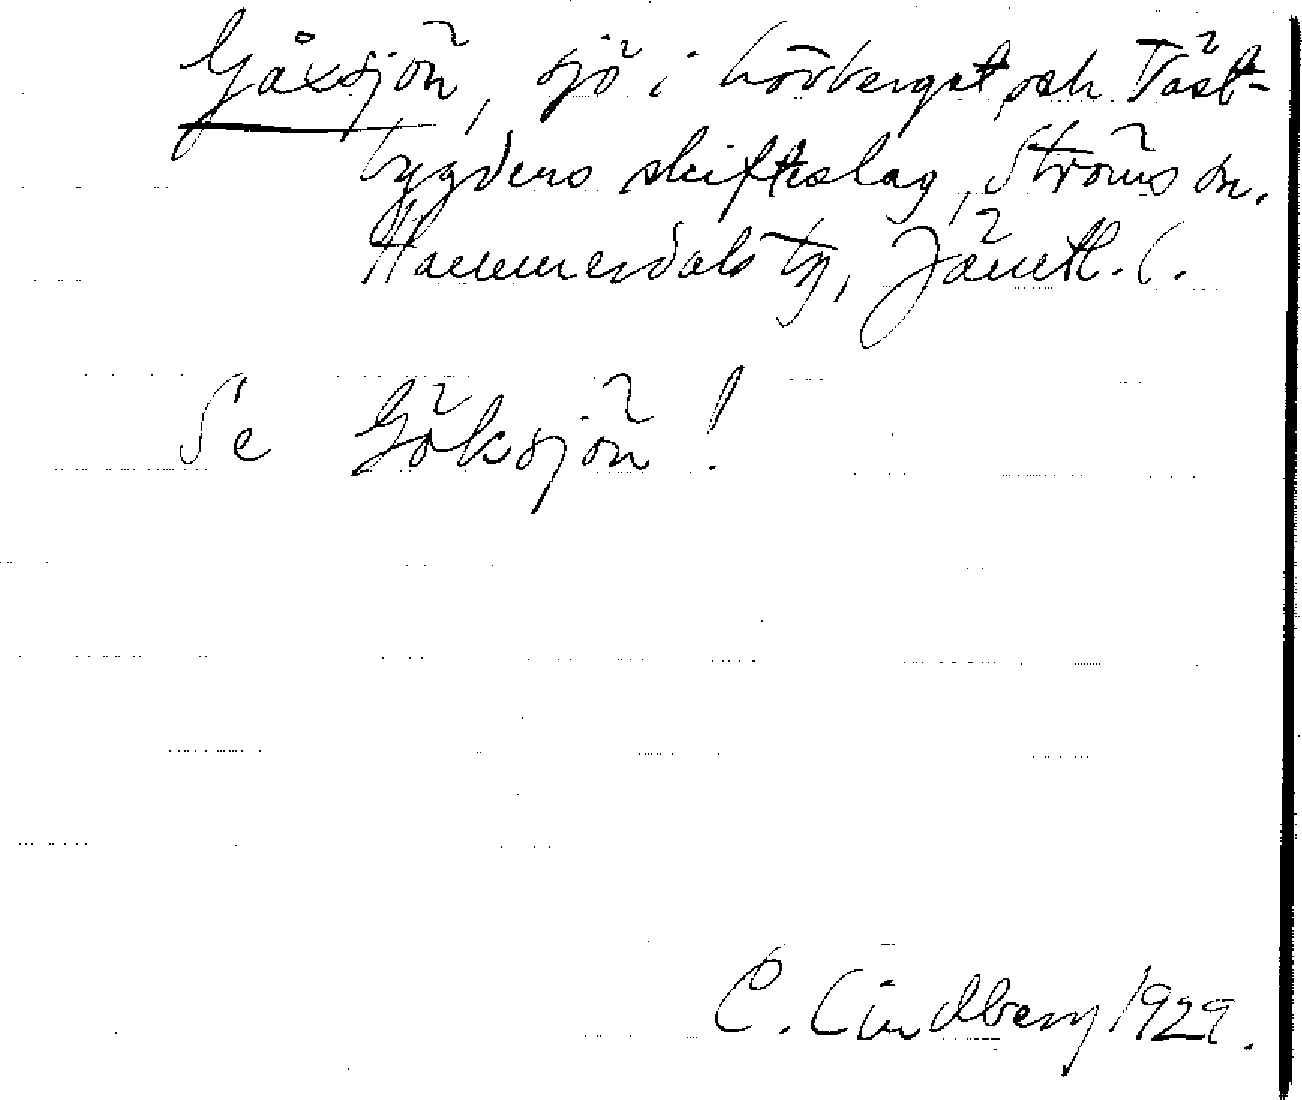 Gåxsjön, sjö i Lövberget och Väst-
bygdens skifteslag, Ströms sn.
Hammerdals tg, Jämtl. l.
Se Göksjön!
C. Lindberg 1929.